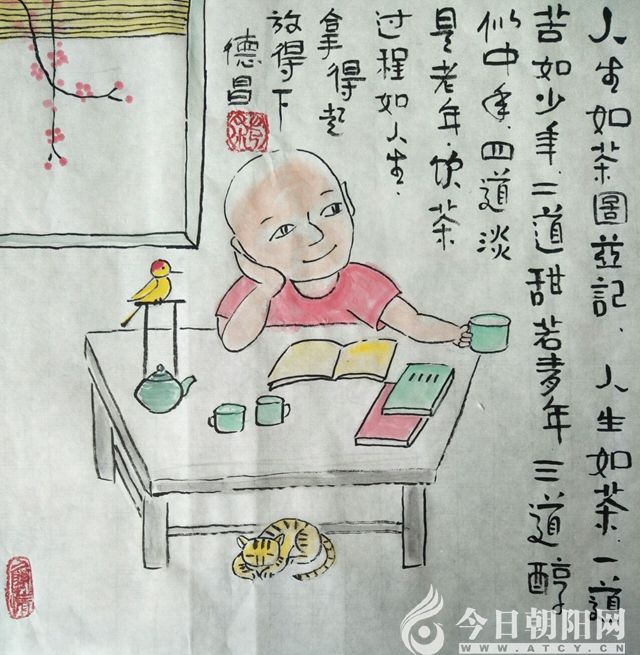 人生如茶圖並記.人生如茶.一道
苦如少年.二道甜若青年三道醇
似中年.四道淡
是老年.饮茶
过程如人生.
拿得起
放得下
德昌
今日朝阳网
WWW.ATCY.CN